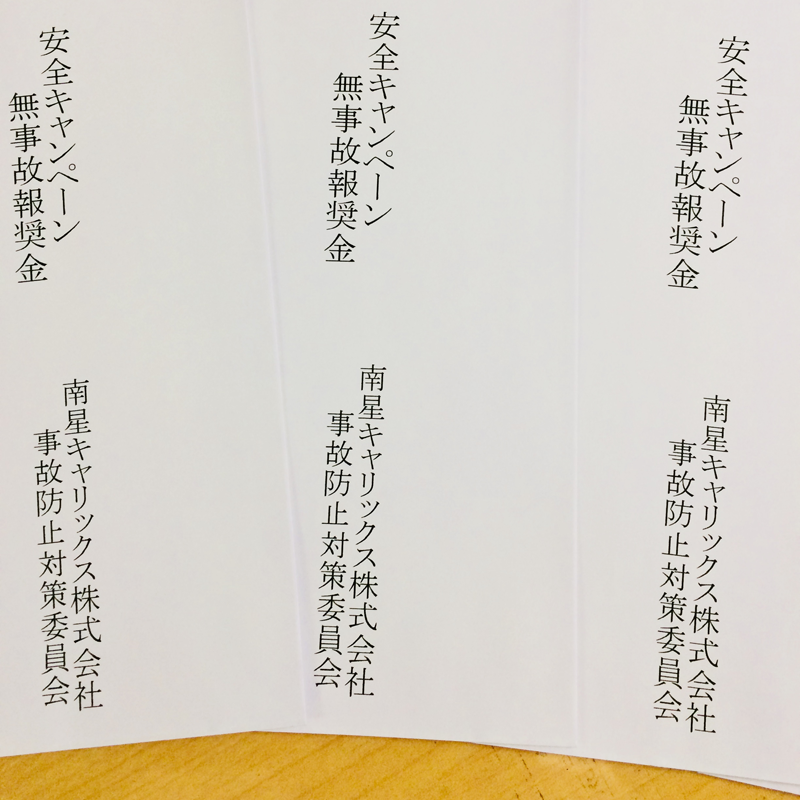 安全キャンペーン
無事故報奨金
南星キャリックス株式会社
事故防止対策委員会
安全キャンペーン
無事故報奨金
南星キャリックス株式会社
事故防止対策委員会
安全キャンペーン
無事故報奨金
南星キャリックス株式会社
事故防止対策委員会